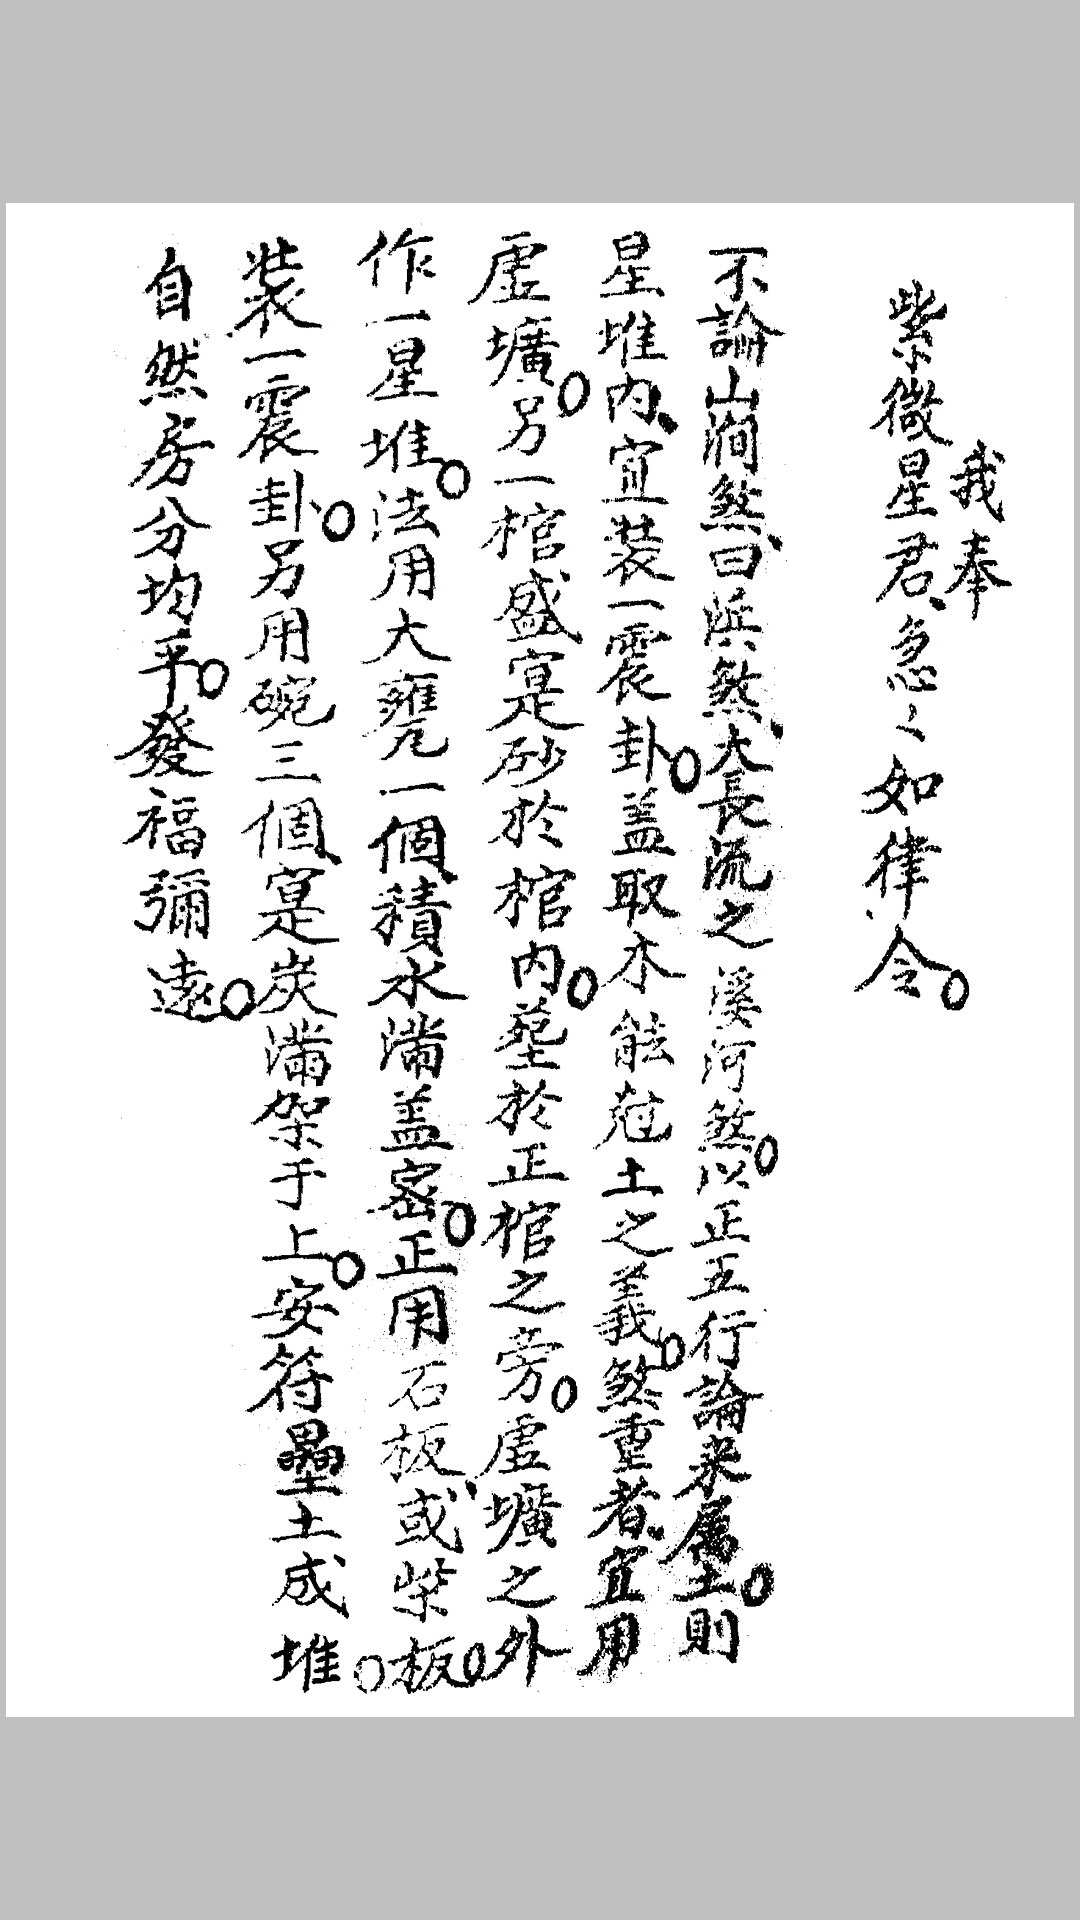 我奉
紫微星君、急々如律令。
不論山澗煞、田浜煞、大長流之溪河煞。以正五行論来属土。則
星堆內、宜裝一震卦。盖取木能尅土之義。煞重者、宜用
虛壙。另一棺盛寔砂於棺內。塟於正棺之旁。虛壙之外
作一星堆。法用大甕一個、積水滿盖密。正用石板、或柴板。
裝一震卦。另用碗三個、寔炭滿架于上。安符壘土成堆。
自然房分均平。發福彌遠。